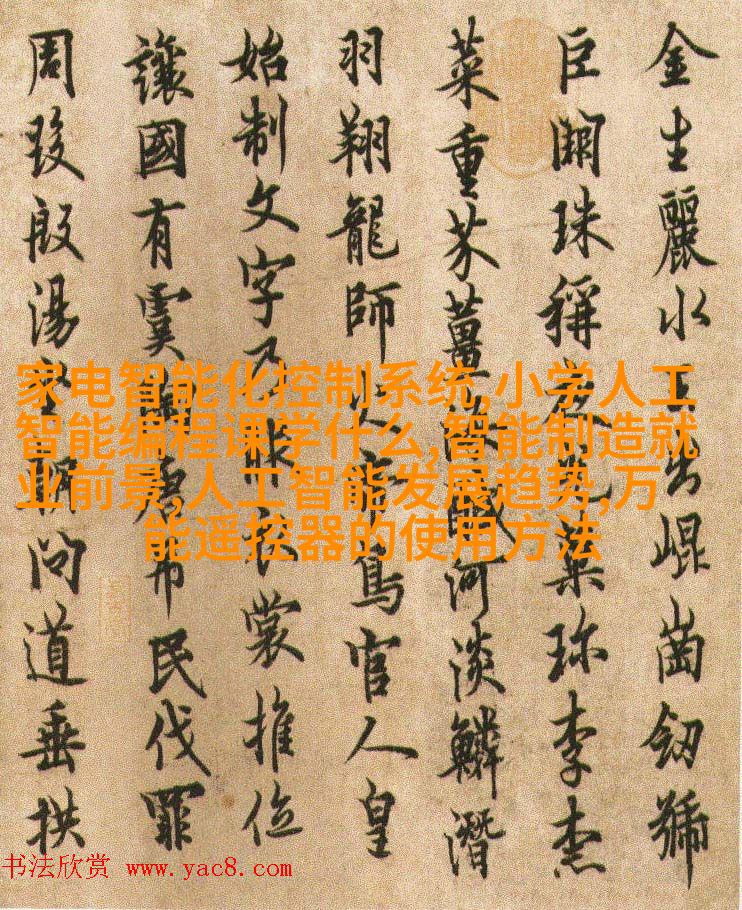 金生麗水玉出崐崗劒號
巨闕珠稱夜光菓珎李柰
菜重芥薑海醎河淡鱗潛
羽翔龍師火帝鳥官人皇
始制文字乃服衣裳推位
讓國有虞陶唐弔民伐罪
周發殷湯坐朝問道垂拱
家电智能化控制系统,小学人工
智能编程课学什么,智能制造就
业前景,人工智能发展趋势,万
能遥控器的使用方法
书法欣赏 www.yac8.com